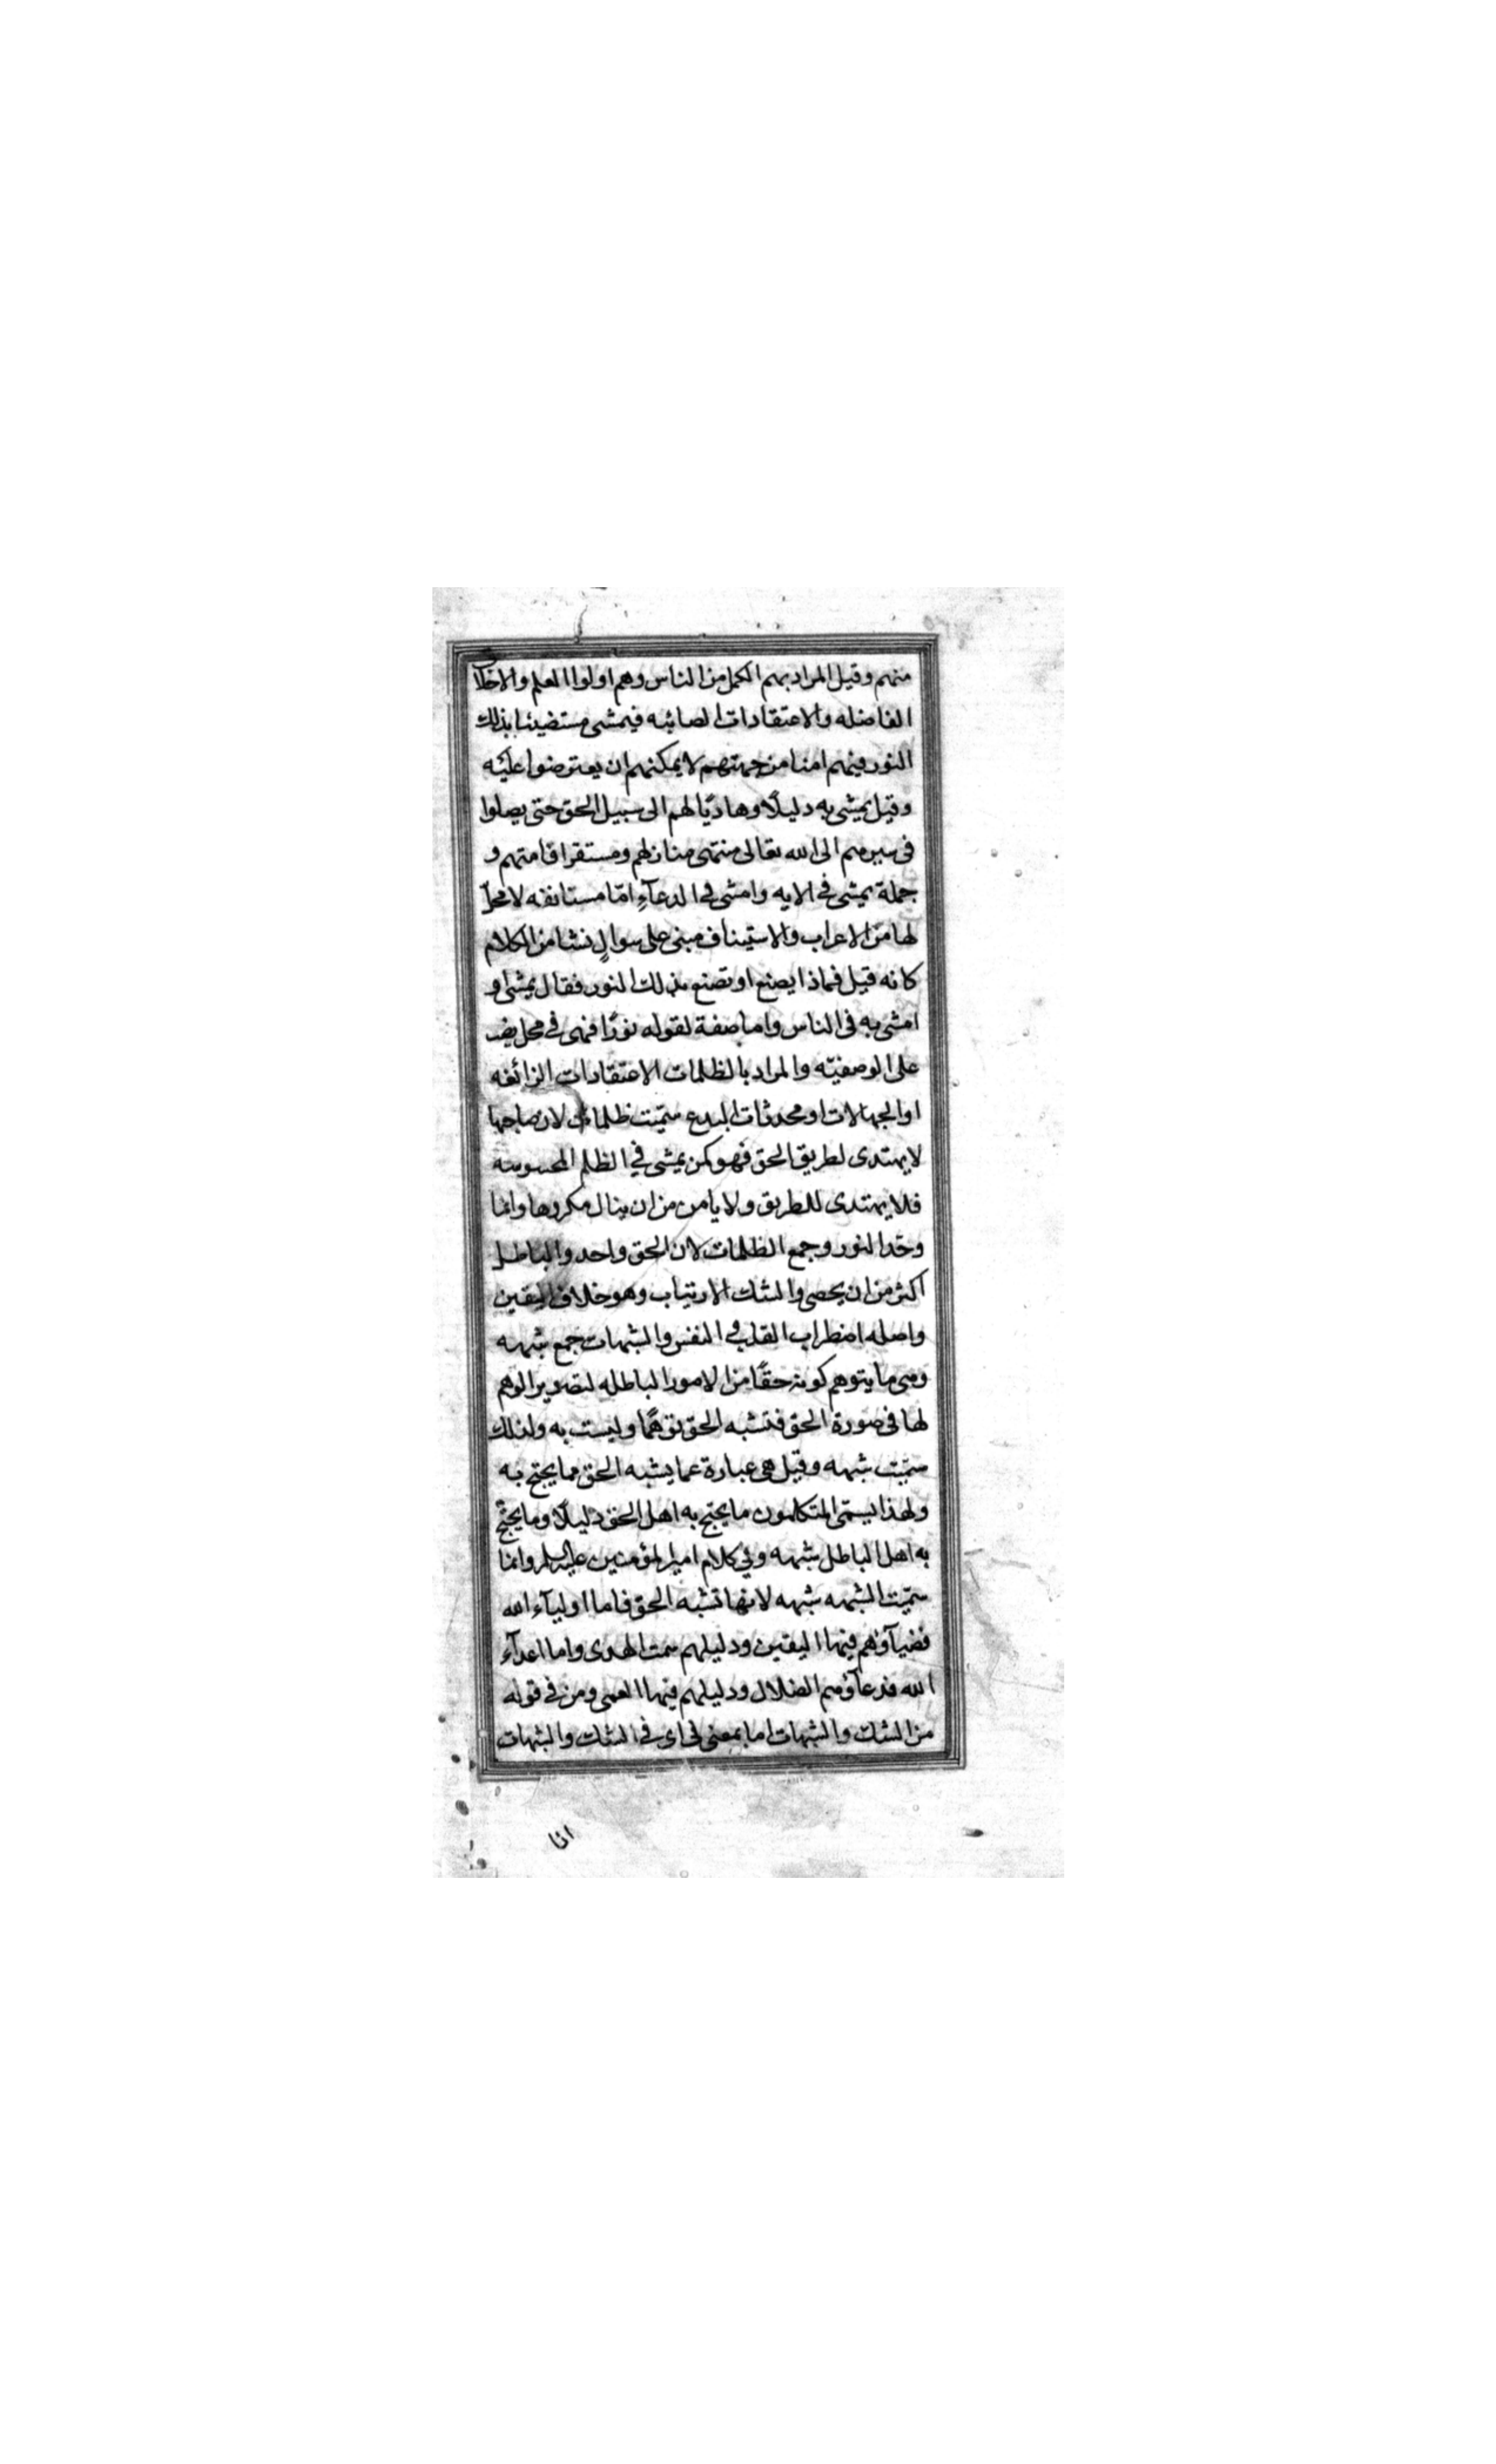 منهم وقيل المراد بهم الكمل من الناس وهم اولوا العلم والاخلاق
الفاضله والاعتقادات الصائبه فيمشى مستضيئا بذلك
النور فيهم امنا من جهتهم لا يمكنهم ان يعترضوا عليه
وقيل يمشى به دليلًا وهاديًا لهم الى سبيل الحق حتى يصلوا
فى سيرهم الى الله تعالى منتهى منازلهم ومستقر اقامتهم و
جملة يمشى فى الايه وامشى فى الدعآءِ امّا مستانفه لا محلّ
لها من الاعراب والاستيناف مبنى على سوالٍ نشا من الكلام
كانه قيل فماذا يصنع او تصنع بذلك النور فقال يمشى او
امشى به فى الناس واما صفة لقوله نورًا فهى فى محل نصب
على الوصفيّه والمراد بالظلمات الاعتقادات الزائغه
او الجهالات او محدثات البدع سمّيت ظلمات لان صاحبها
لا يهتدى لطريق الحق فهو كمن يمشى فى الظلم المحسوسه
فلا يهتدى للطريق ولا يامن من ان ينال مكروها وانما
وحّد النور وجمع الظلمات لان الحق واحد والباطل
اكثر من ان يحصى والشك الارتياب وهو خلاف اليقين
واصله اضطراب القلب فى النفس والشبهات جمع شبهه
وهى ما يتوهم كونه حقًا من الامور الباطله لتصوير الوهم
لها فى صورة الحق فتشبه الحق توهّمًا وليست به ولذلك
سمّيت شبهه وقيل هى عبارة عما يشبه الحق مما يحتج به
ولهذا يسمّى المتكلمون ما يحتج به اهل الحق دليلًا وما يحتجّ
به اهل الباطل شبهه وفى كلام امير المؤمنين عليه السلم وانما
سمّيت الشبهه شبهه لانها تشبه الحق فاما اوليآء الله
فضيآؤهم فيها اليقين ودليلهم سمت الهدى واما اعدآء
الله فدعآؤهم الضلال ودليلهم فيها العمى ومن فى قوله
من الشك والشبهات اما بمعنى فى اى فى الشك والشبهات
انا